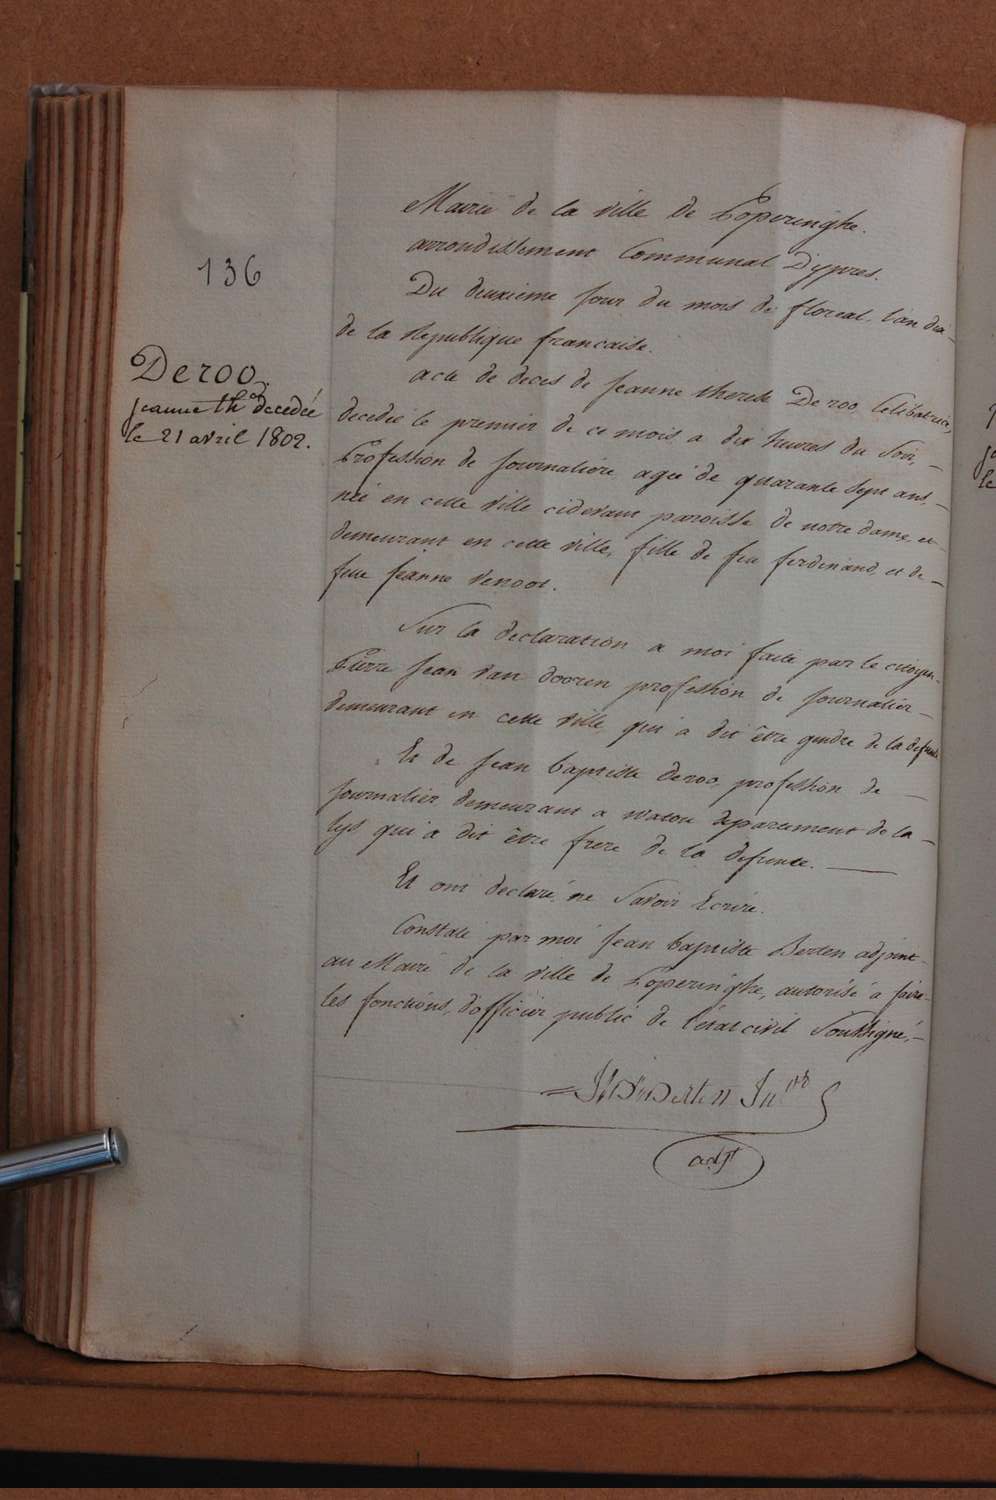 136
Deroo.
jeanne th.e decedée
le 21 avril 1802.
Mairie de la ville de Poperinghe.
arrondissement Communal Dypres.
Du deuxieme jour du mois de floreal, l'an dix
de la Republique francaise.
acte de deces de jeanne therese Deroo, Celibatrice,
decedée le premier de ce mois a dix heures du soir,
Profession de journaliere agée de quarante sept ans,
née en cette ville cidevant paroisse de notre dame, et
demeurant en cette ville, fille de feu ferdinand, et de
feue jeanne
Sur la declaration a moi faite par le citoyen
Pierre jean van dooren profession de journalier
demeurant en cette ville, qui a dit être gendre de la defunte
Et de jean baptiste deroo, profession de
journalier demeurant a watou departement de la
lys qui a dit être frere de la defunte.
Et ont declaré, ne Savoir Ecrire.
Constaté par moi jean baptiste Berten adjoint
au Maire de la ville de Poperinghe, autorisé a faire
les fonctions, dofficier public de l'état civil Soussigné,
Berten
adjt